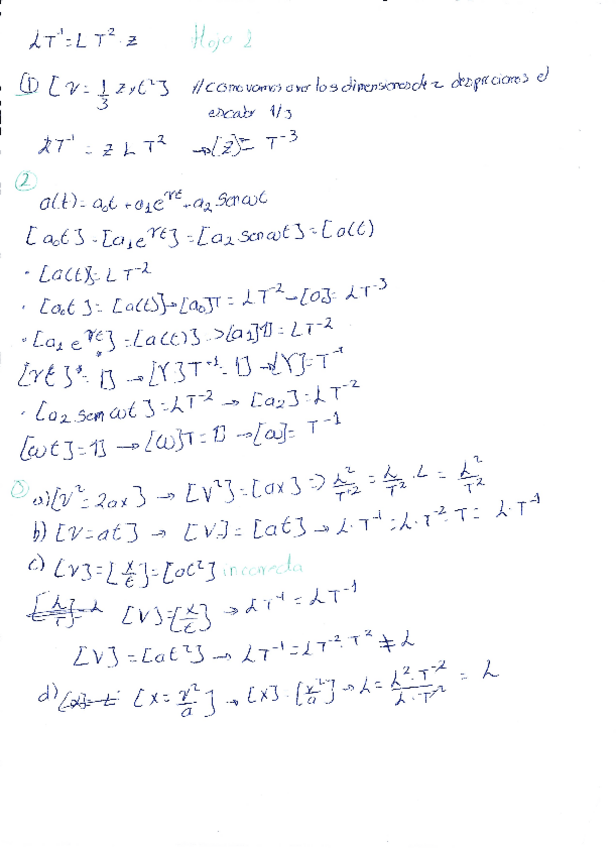 LT⁻¹ = L T² · z Hoja 2
① [v = 1/3 z x t²] // como vamos a ver los dimensiones de z despreciamos el
escalar 1/3
LT⁻¹ = z L T² → [z] = T⁻³
②
a(t) = a₀t + a₁e^γt + a₂ sen ωt
[a₀t] = [a₁e^γt] = [a₂ sen ωt] = [a(t)]
· [a(t)] = LT⁻²
· [a₀t] = [a(t)] → [a₀]T = LT⁻² → [a] = LT⁻³
· [a₁ e^γt] = [a(t)] → [a₁]·1] = LT⁻²
[γt] = 1] → [γ]T⁻¹ = 1] → [γ] = T⁻¹
· [a₂ sen ωt] = LT⁻² → [a₂] = LT⁻²
[ωt] = 1] → [ω]T = 1] → [ω] = T⁻¹
③ a) [v² = 2ax] → [v²] = [ax] ⇒ L²/T² = L/T² · L = L²/T²
b) [v = at] → [v] = [at] → L·T⁻¹ = L·T⁻²·T = L·T⁻¹
c) [v] = [x/t] = [at²] incorrecta
[v] = [x/t] → LT⁻¹ = LT⁻¹
[v] = [at²] → LT⁻¹ = LT⁻²·T² ≠ L
d) [x = v²/a] → [x] · [v²/a] → L = L²·T⁻²/L·T⁻² = L